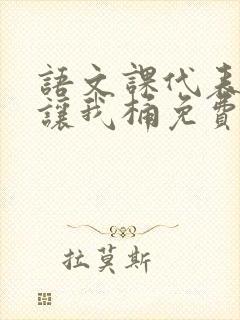 語文課代表
讓我桶免費
拉莫斯